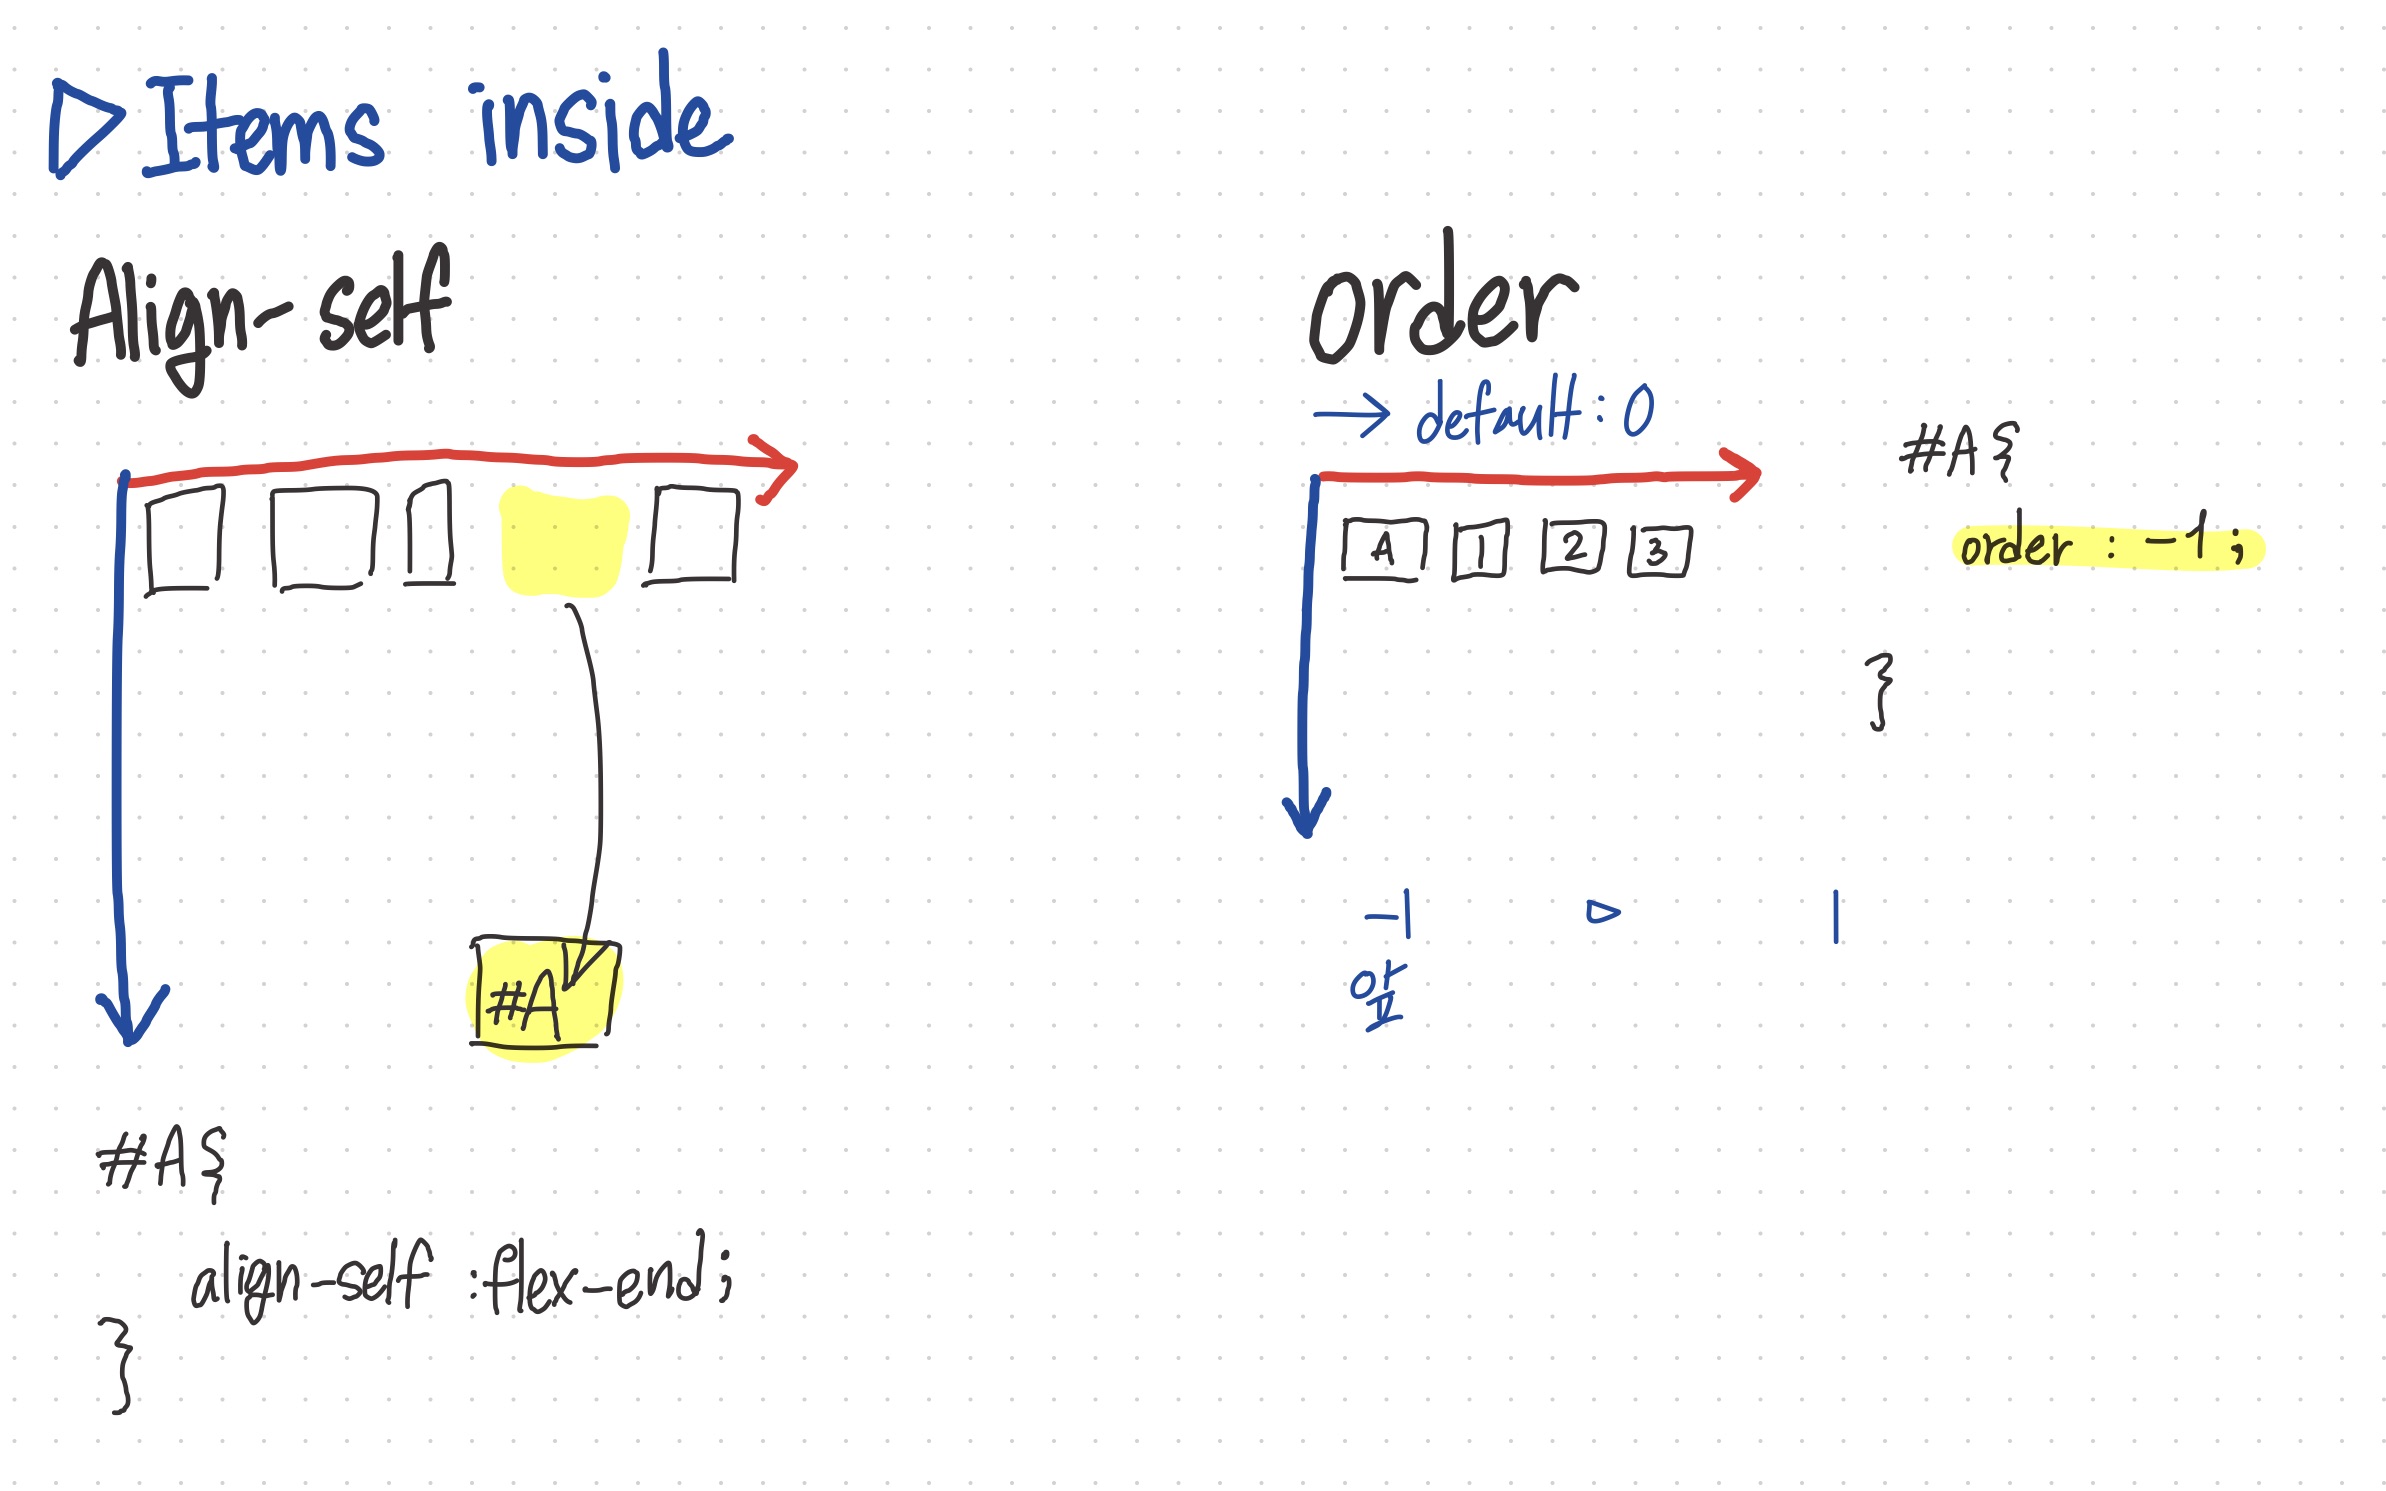 ▷Items inside
Align-self
#A
#A{
align-self :flex-end;
}
order
→ default: 0
A 1 2 3
#A{
order : -1;
}
-1 ▷ 1
앞